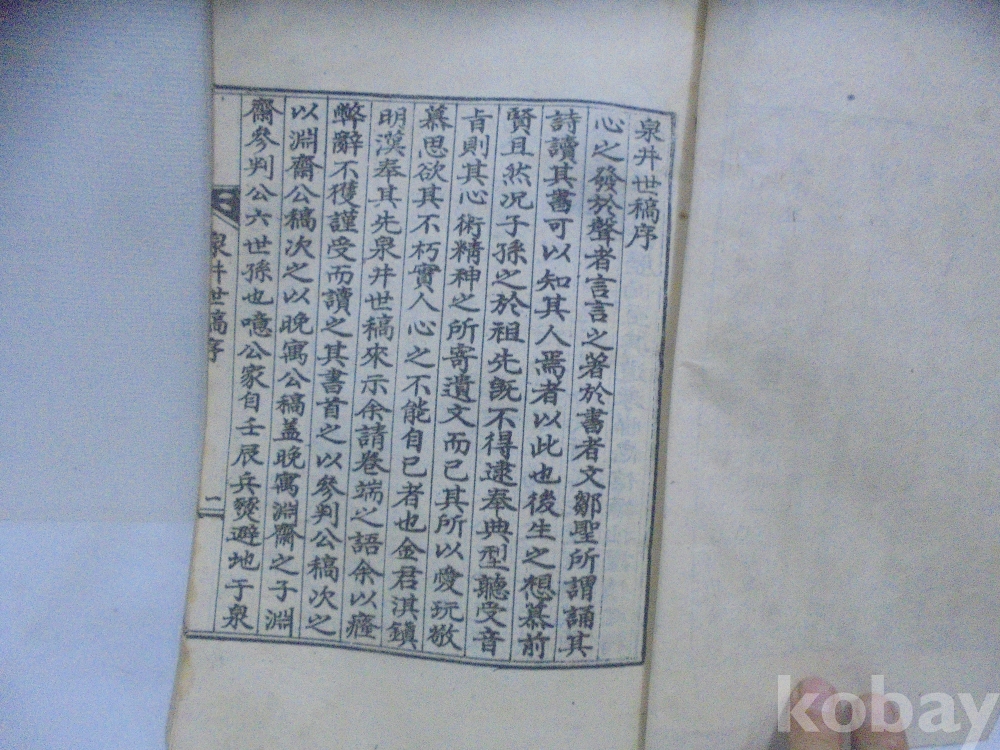 泉井世稿序
心之發於聲者言言之著於書者文鄒聖所謂誦其
詩讀其書可以知其人焉者以此也後生之想慕前
賢且然况子孫之於祖先旣不得逮奉典型聽受音
旨則其心術精神之所寄遺文而已其所以愛玩敬
慕思欲其不朽實人心之不能自已者也金君淇鎭
明漢奉其先泉井世稿來示余請卷端之語余以癃
弊辭不獲謹受而讀之其書首之以參判公稿次之
以淵齋公稿次之以晚寓公稿盖晚寓淵齋之子淵
齋參判公六世孫也噫公家自壬辰兵燹避地于泉
泉井世稿序
二
kobay